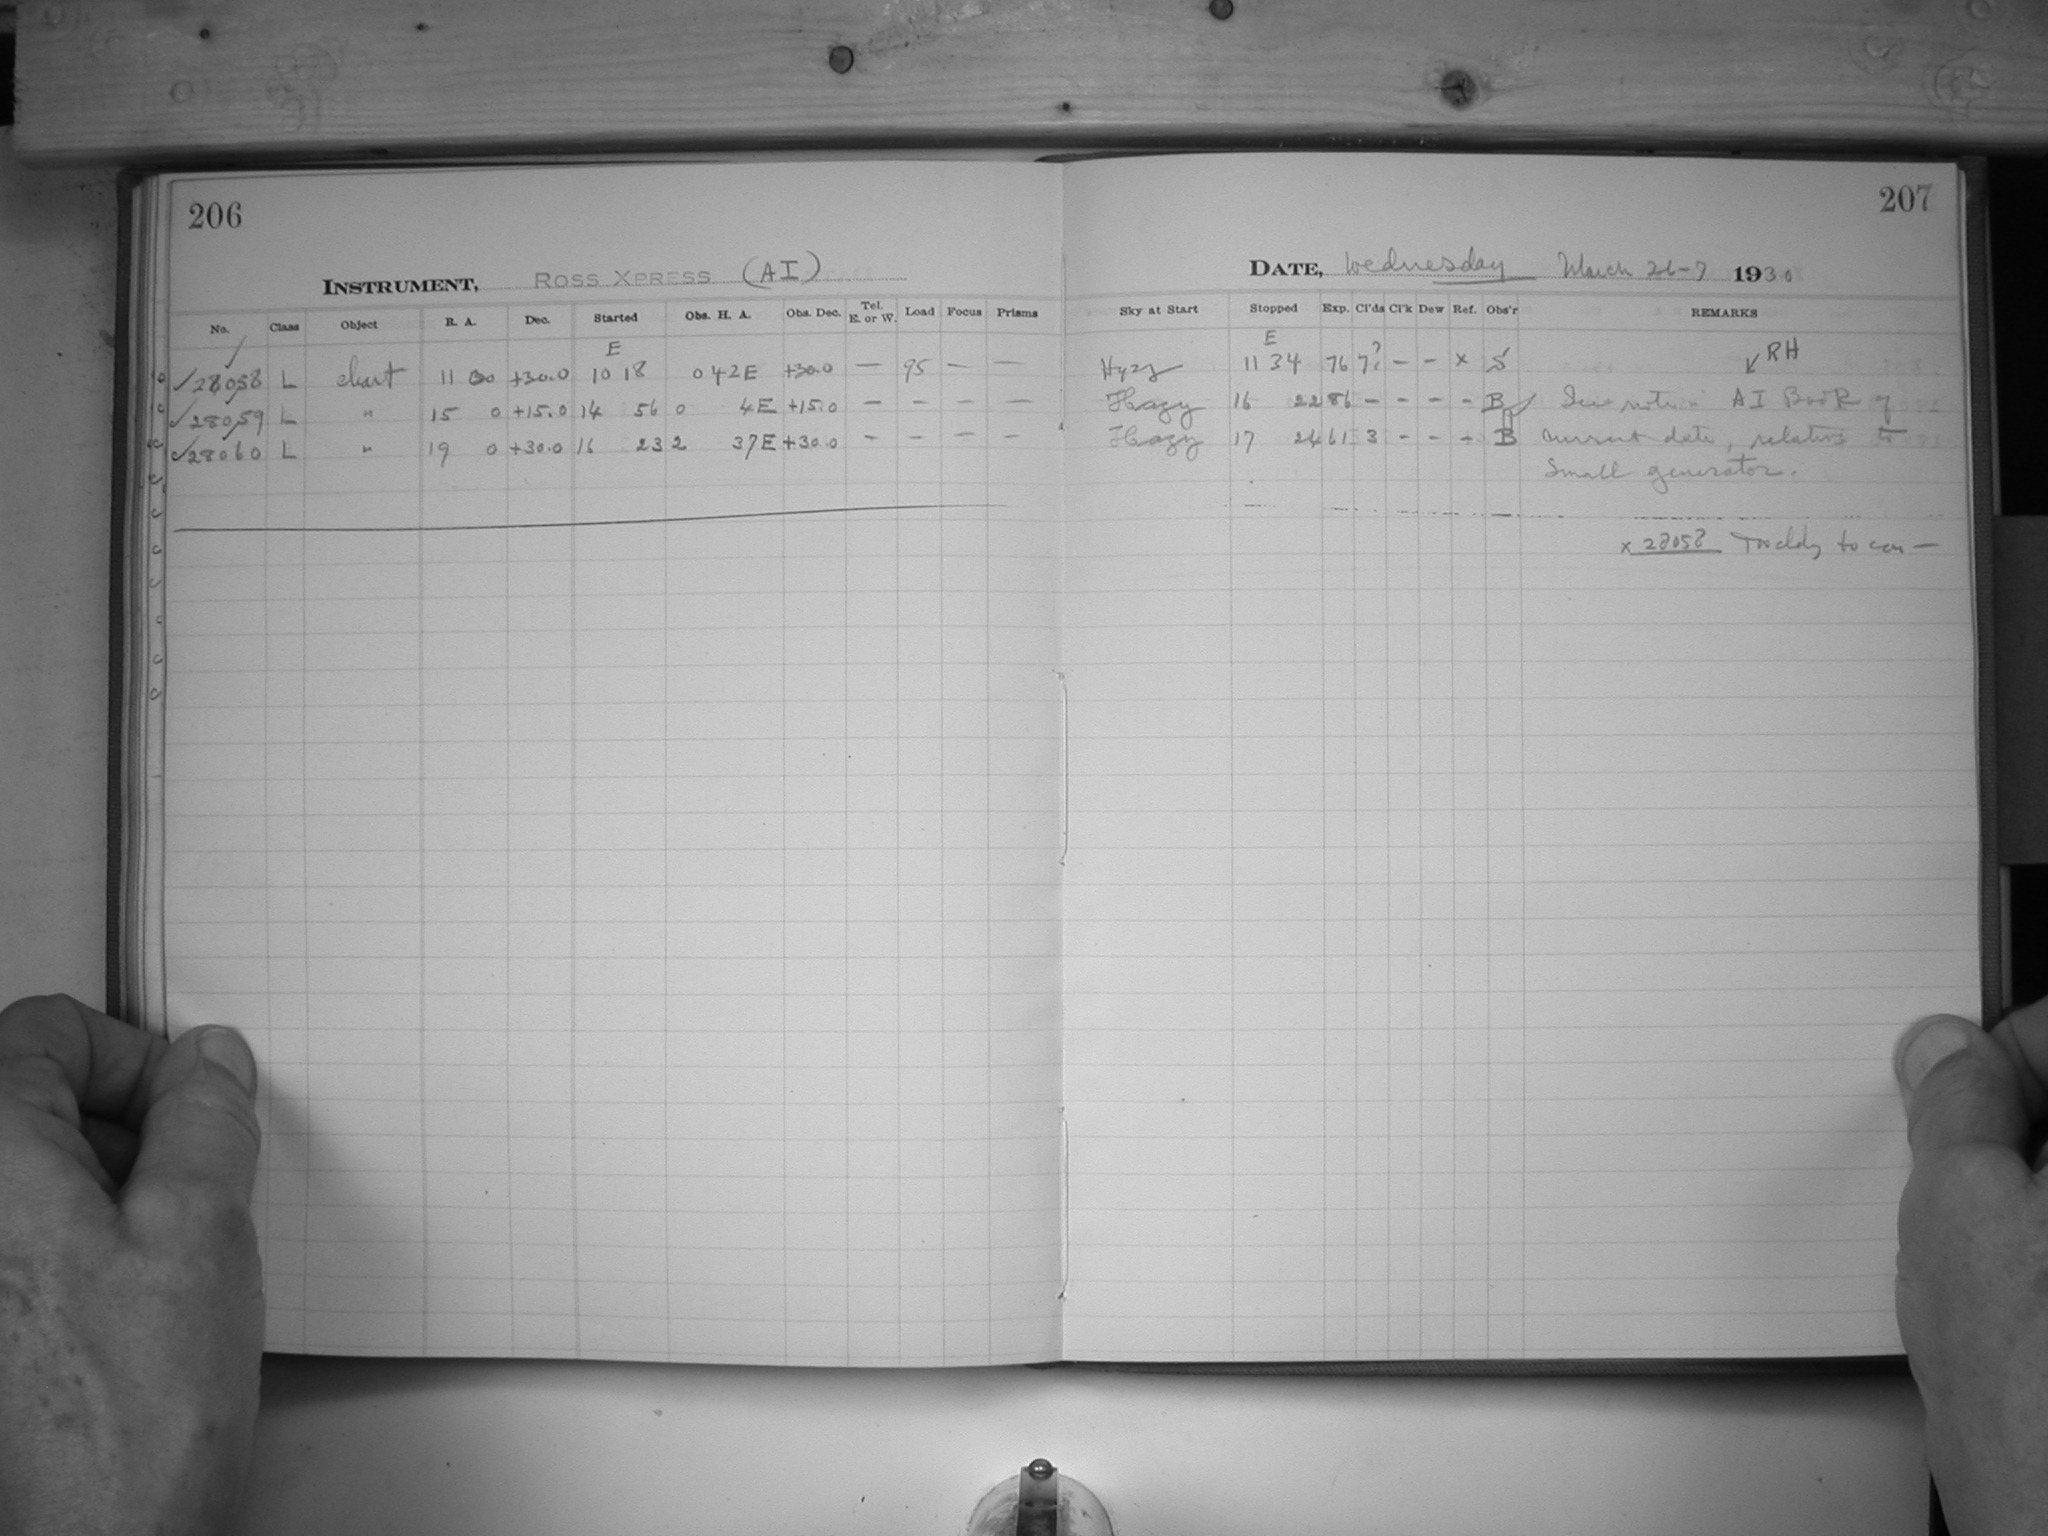 206
207
INSTRUMENT, ROSS XPRESS (AI)
DATE, Wednesday March 26-7 1930
No. Class Object R. A. Dec. Started Obs. H. A. Obs. Dec. Tel. E. or W. Load Focus Prisms Sky at Start Stopped Exp. Cl'ds Cl'k Dew Ref. Obs'r REMARKS
E E RH
28058 L chart 11 00 +30.0 10 18 0 42E +30.0 — 95 — — Hyzy 11 34 76 7? - - x S
28059 L " 15 0 +15.0 14 56 0 4E +15.0 - - - - Hazy 16 22 86 - - - - B See note in AI Book of
28060 L " 19 0 +30.0 16 23 2 37E +30.0 - - - - Hazy 17 24 61 3 - - - B current date, relative to
small generator.
x 28058 to